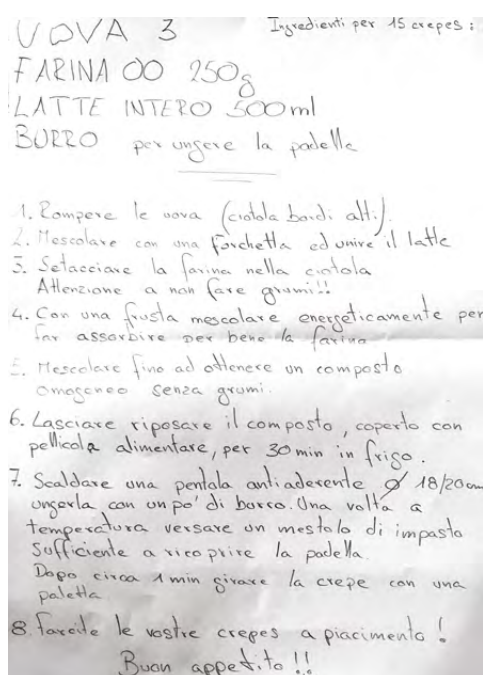 Ingredienti per 15 crepes :
UOVA 3
FARINA 00 250g
LATTE INTERO 500ml
BURRO per ungere la padella
1. Rompere le uova (ciotola bordi alti).
2. Mescolare con una forchetta ed unire il latte
3. Setacciare la farina nella ciotola
Attenzione a non fare grumi!!
4. Con una frusta mescolare energeticamente per
far assorbire per bene la farina
5. Mescolare fino ad ottenere un composto
omogeneo senza grumi.
6. Lasciare riposare il composto, coperto con
pellicola alimentare, per 30 min in frigo.
7. Scaldare una pentola antiaderente Ø 18/20cm
ungerla con un po' di burro. Una volta a
temperatura versare un mestolo di impasto
sufficiente a ricoprire la padella.
Dopo circa 1 min girare la crepe con una
paletta.
8. farcite le vostre crepes a piacimento !
Buon appetito !!